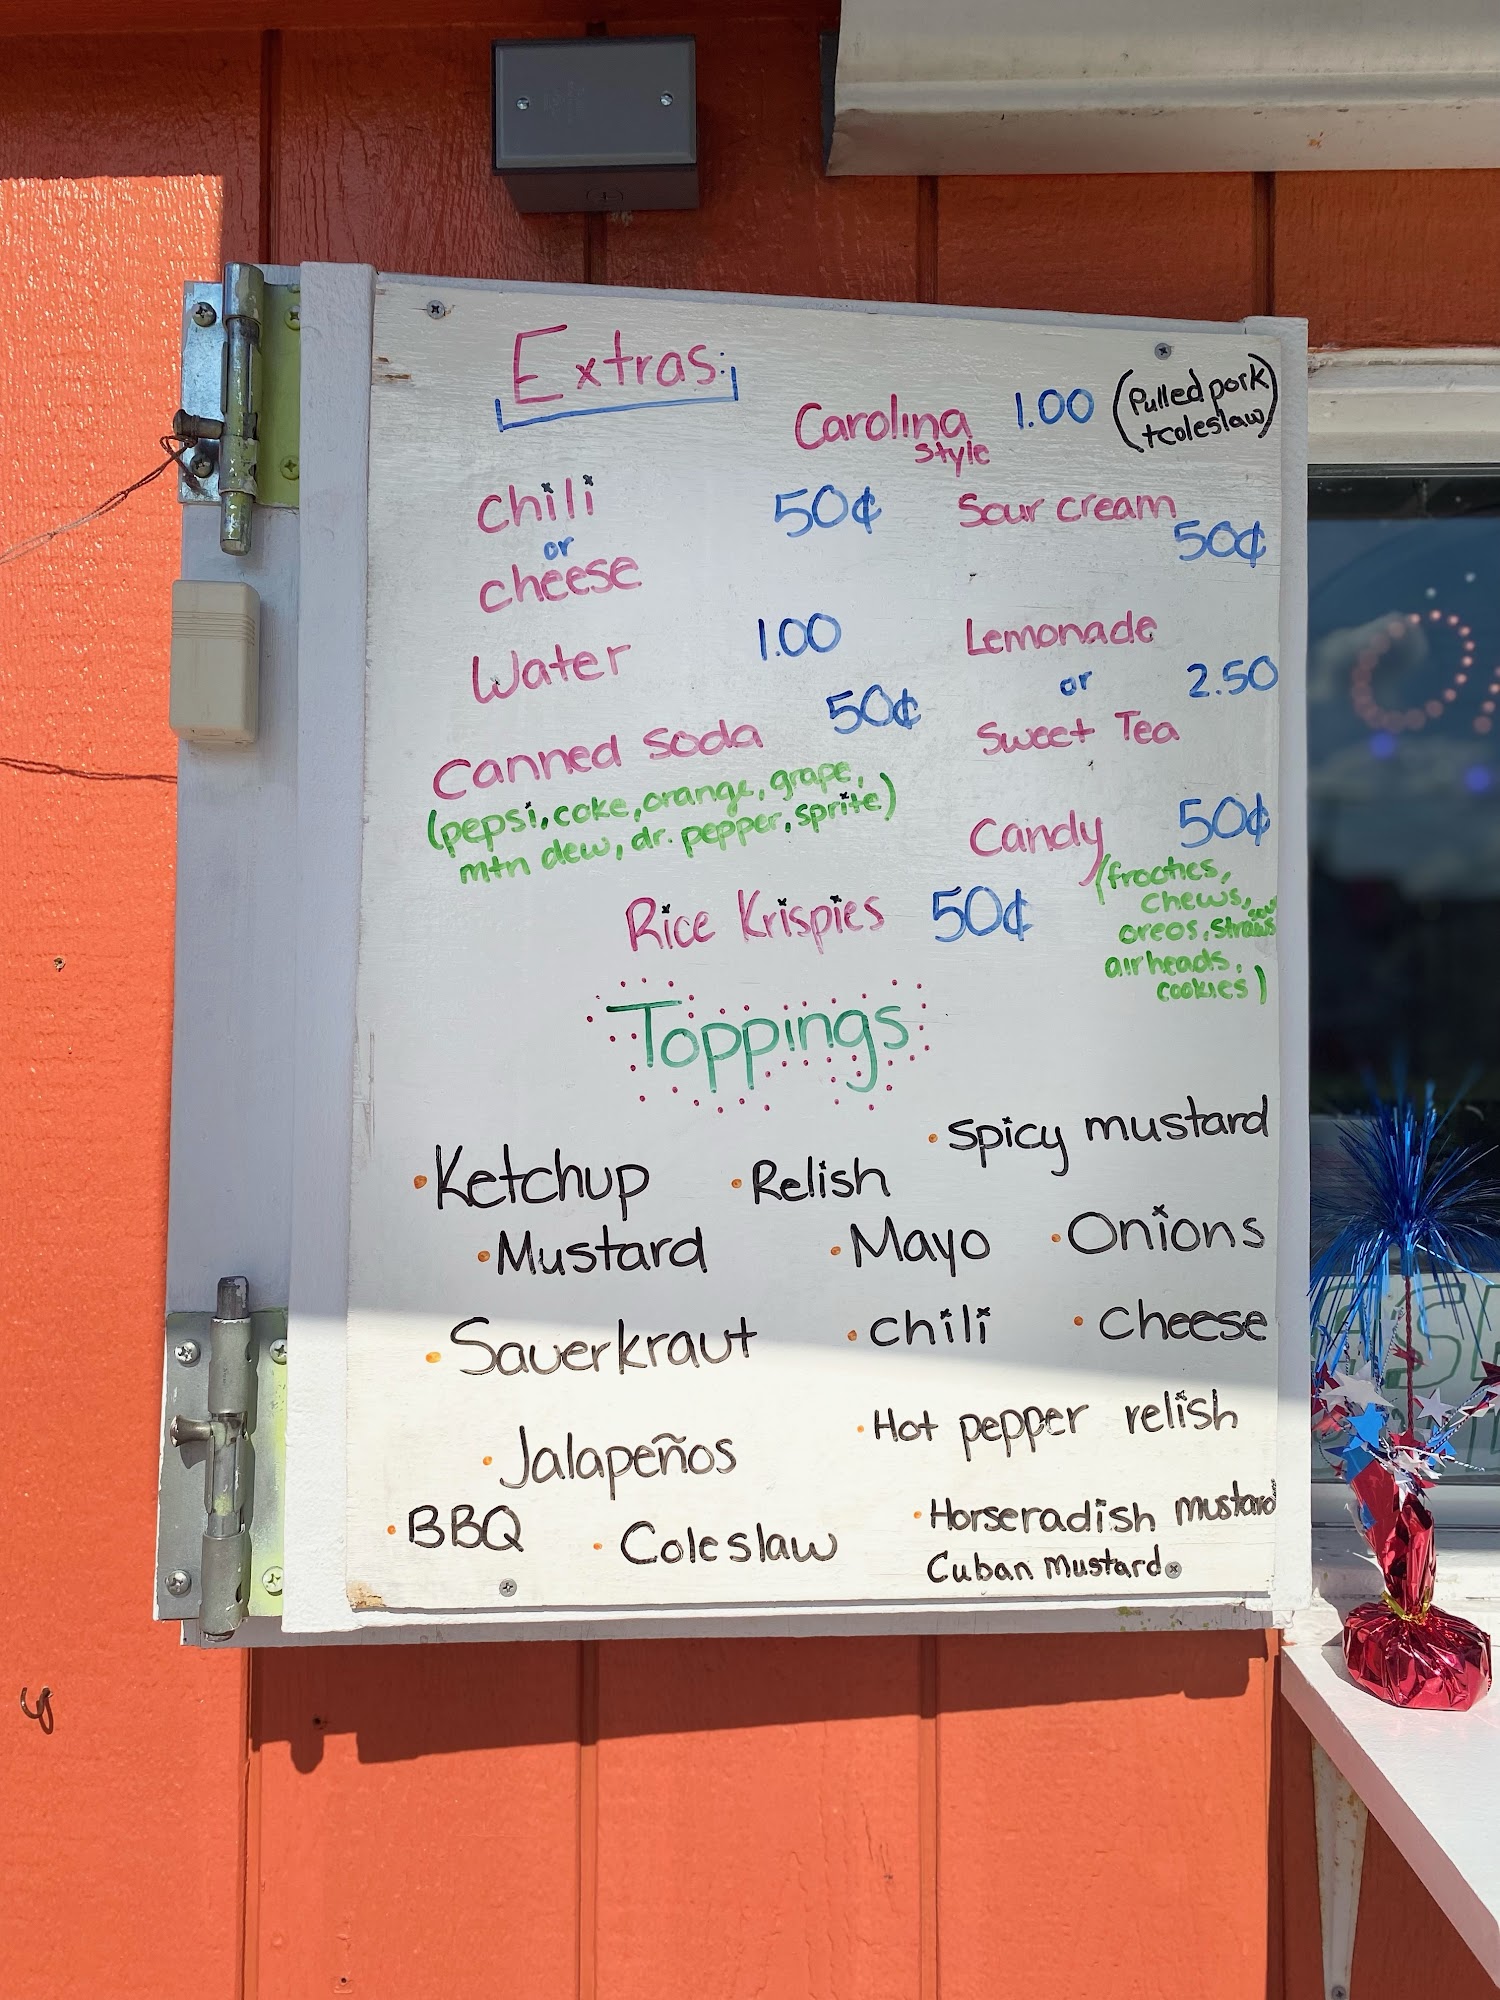 Extras:
Carolina Style 1.00 (Pulled pork
+coleslaw)
chili 50¢
or
cheese
Sour cream
50¢
Water 1.00
Lemonade
or 2.50
Sweet Tea
Canned soda 50¢
(pepsi, coke, orange, grape,
mtn dew, dr. pepper, sprite)
Candy 50¢
(frooties,
chews,
oreos, sour straws
airheads,
cookies)
Rice Krispies 50¢
Toppings
• Ketchup • Relish • Spicy mustard
• Mustard • Mayo • Onions
• Sauerkraut • chili • Cheese
• Jalapeños • Hot pepper relish
• BBQ • Coleslaw • Horseradish mustard
Cuban Mustard